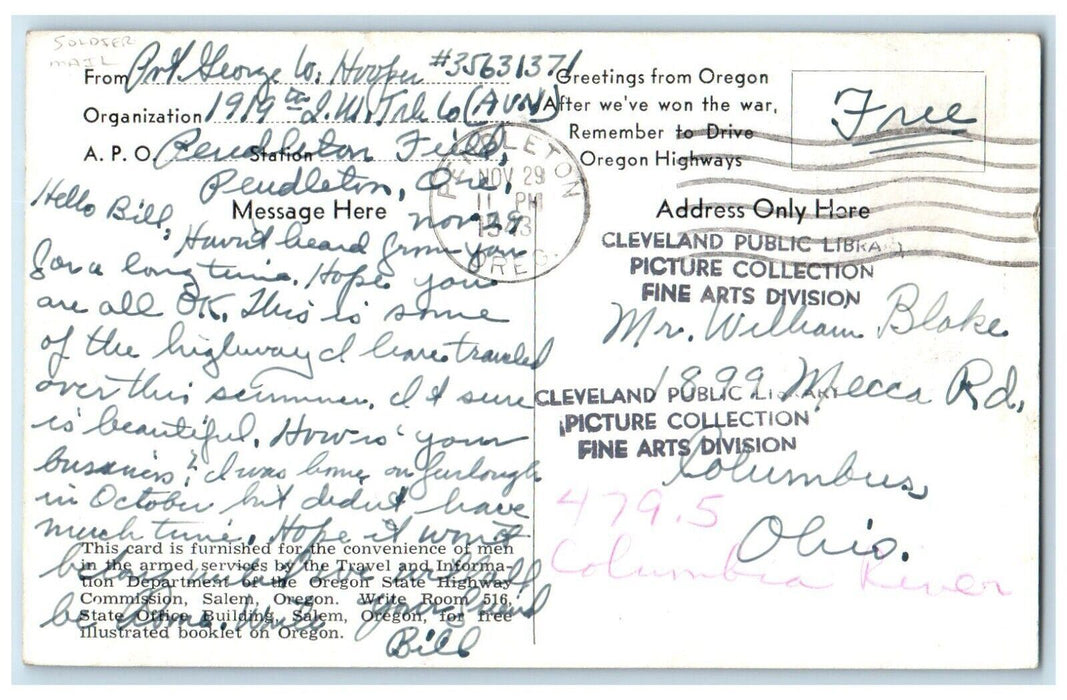 SOLDIER
MAIL
From Pvt. George W. Hooper #35631371
Organization 1919th Q.M. Trk Co (AVN)
A. P. O. Station Pendleton Field,
Pendleton, Ore,
Greetings from Oregon
After we've won the war,
Remember to Drive
Oregon Highways
Free
PENDLETON
NOV 29
11 PM
OREG.
Message Here
Nov 29
Hello Bill,
Havn't heard from you
for a long time. Hope you
are all OK. This is some
of the highway I have traveled
over this summer. It sure
is beautiful. How is your
business? I was home on furlough
in October but didn't have
much time. Hope it won't
be long until we
be home. Write
Your friend
Bill
This card is furnished for the convenience of men
in the armed services by the Travel and Informa-
tion Department of the Oregon State Highway
Commission, Salem, Oregon. Write Room 516,
State Office Building, Salem, Oregon, for free
illustrated booklet on Oregon.
Address Only Here
CLEVELAND PUBLIC LIBRARY
PICTURE COLLECTION
FINE ARTS DIVISION
Mr. William Blake
1899 Mecca Rd,
CLEVELAND PUBLIC LIBRARY
PICTURE COLLECTION
FINE ARTS DIVISION
Columbus,
Ohio.
479.5
Columbia River